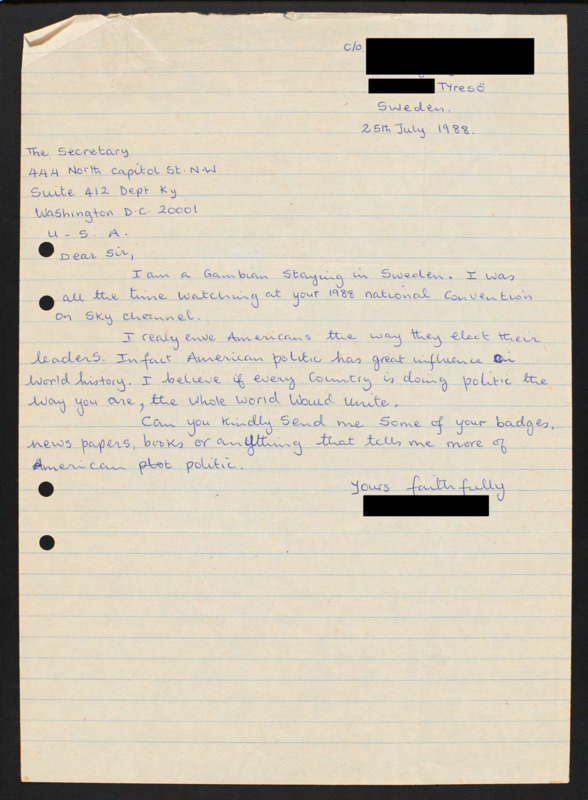 c/o
Tyresö
Sweden.
25th July 1988.
The Secretary
444 North Capitol St. N.W
Suite 412 Dept Ky
Washington D.C. 20001
U - S A.
Dear Sir,
I am a Gambian Staying in Sweden. I was
all the time watching at your 1988 national Convention
on Sky channel.
I realy enve Americans the way they elect their
leaders. Infact American politic has great influence on
World history. I believe if every Country is doing politic the
Way you are, the whole World Would Unite.
Can you Kindly Send me Some of your badges,
news papers, books or anything that tells me more of
American plot politic.
Yours faithfully